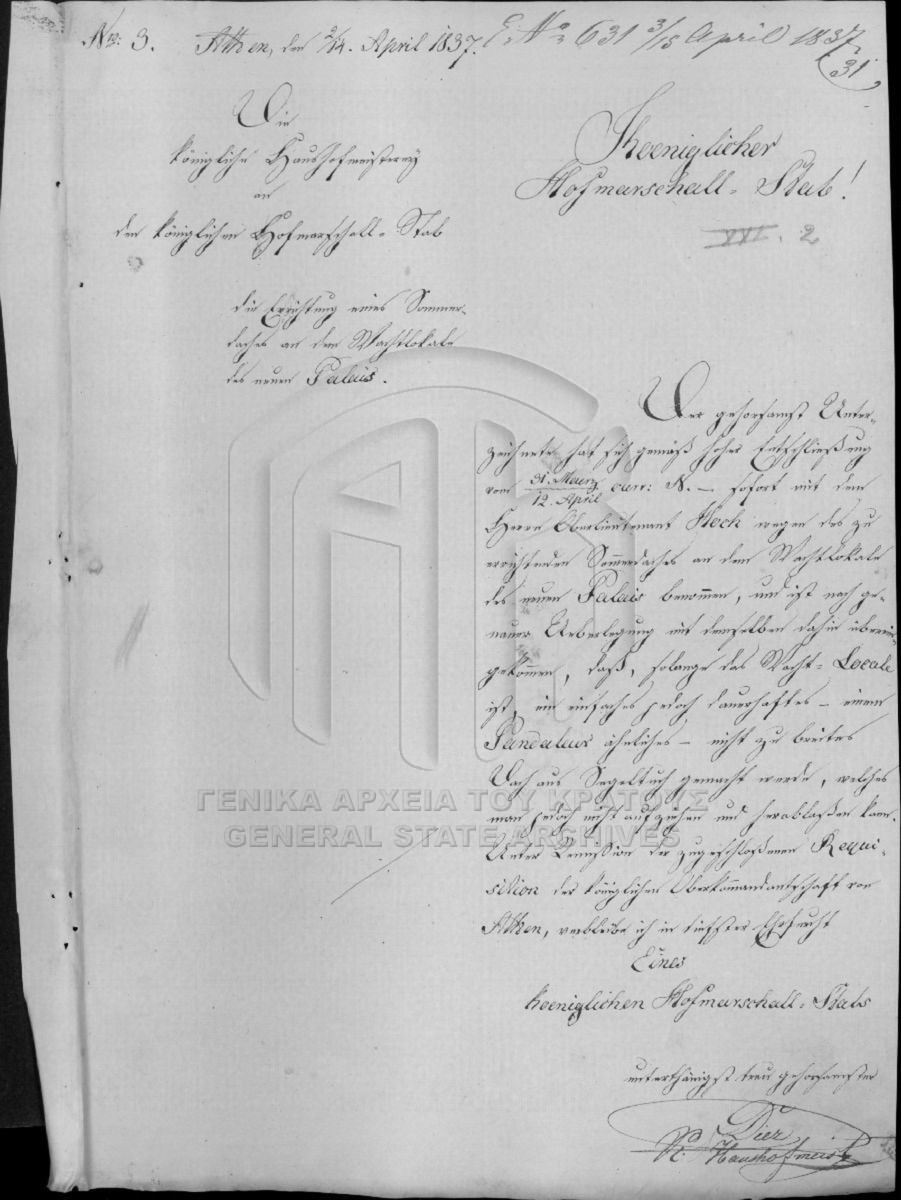 Nro: 3. Athen, den 2/14. April 1837. E. No 631 3/15 April 1837
31
Die
königliche Haushofmeisterey
an
den königlichen Hofmarschall-Stab
die Errichtung eines Sommer-
daches an dem Wachtlokale
des neuen Palais.
Koeniglicher
Hofmarschall-Stab!
XXI. 2
Der gehorsamst Unter-
zeichnete hat sich gemäß hoher Entschließung
vom 31. Maerz/12. April curr: N. – sofort mit dem
Herrn Oberlieutenant Hoch wegen des zu
errichtenden Sommerdaches an dem Wachtlokale
des neuen Palais benommen, und ist nach ge-
nauer Ueberlegung mit demselben dahin überein-
gekommen, daß, solange das Wacht-Locale
ist, ein einfaches jedoch dauerhaftes – einem
Pandaleur ähnliches – nicht zu breites
Dach aus Segeltuch gemacht werde, welches
man jedoch nicht aufziehen und herablaßen kann.
Unter Remission der zugeschloßenen Requi-
sition der königlichen Oberkommandantschaft von
Athen, verbleibe ich in tiefster Ehrfurcht
Eines
koeniglichen Hofmarschall-Stabs
unterthänigst treu gehorsamster
Dier
K. Haushofmeister
ΓΕΝΙΚΑ ΑΡΧΕΙΑ ΤΟΥ ΚΡΑΤΟΥΣ
GENERAL STATE ARCHIVES